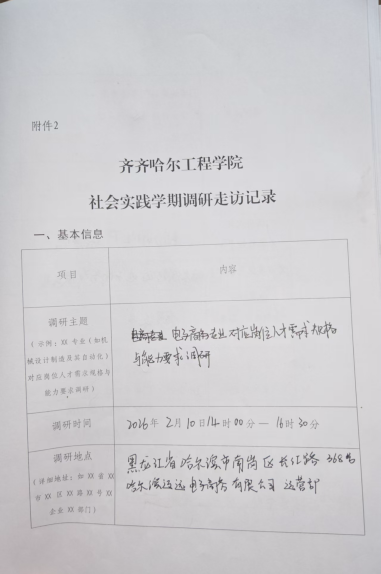 附件2
齐齐哈尔工程学院
社会实践学期调研走访记录
一、基本信息
项目
内容
调研主题
(示例:XX 专业(如机
械设计制造及其自动化)
对应岗位人才需求规格与
能力要求调研)
电子商务专业对应岗位人才需求规格
与能力要求调研
调研时间
2026年2月10日14时00分—16时30分
调研地点
(详细地址:如 XX 省 XX
市 XX 区 XX 路 XX 号 XX
企业 XX 部门)
黑龙江省哈尔滨市南岗区长江路368号
哈尔滨 电子商务有限公司 运营部